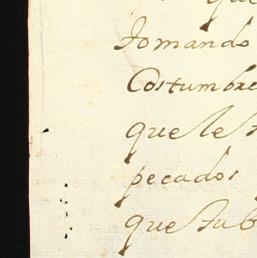 que
tomando
Costumbre
que le
pecados
que sub